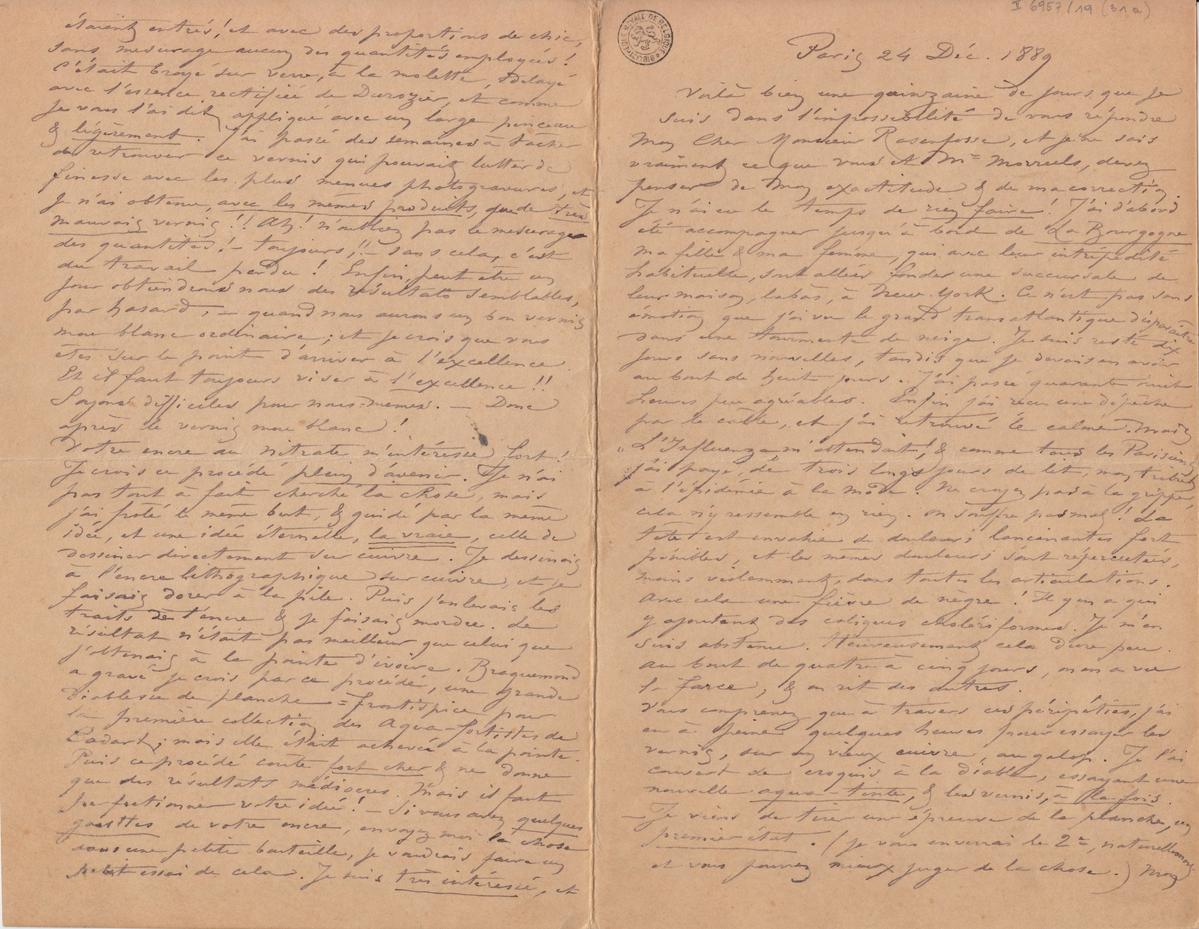 II 6957/19 (31a)
BIBLIOTHEQUE ROYALE DE BELGIQUE
Paris 24 Déc. 1889
Voilà bien une quinzaine de jours que je
suis dans l'impossibilité de vous répondre
Mon Cher Monsieur Rassenfosse, et je ne sais
vraiment ce que vous et Mr, devez
penser de mon exactitude & de ma correction.
Je n'ai eu le temps de rien faire ! J'ai d'abord
été accompagner jusqu'à bord de La Bourgogne
ma fille & ma femme, qui avec leur intrépidité
habituelle, sont allées fonder une succursale de
leur maison, labàs, à New-York. Ce n'est pas sans
émotion que j'ai vu le grand transatlantique disparaître
dans une tourmente de neige. Je suis resté dix
jours sans nouvelles, tandis que je devais en avoir
au bout de huit jours. J'ai passé quarante huit
heures peu agréables. Enfin j'ai reçu une dépêche
par le câble, et j'ai retrouvé le calme. Mais
« L'Influenza » m'attendait, & comme tous les Parisiens,
j'ai payé, de trois longs jours de lit, mon tribut
à l'épidémie à la mode. Ne croyez pas à la grippe,
cela n'y ressemble en rien. On souffre pas mal ! La
tête est envahie de douleurs lancinantes fort
pénibles, et les mêmes douleurs sont répercutées,
moins violemment, dans toutes les articulations.
Avec cela une fièvre de nègre ! Il y en a qui
y ajoutent des coliques cholériformes. Je m'en
suis abstenu. Heureusement cela dure peu.
Au bout de quatre à cinq jours, on en a vu
la farce, & on rit des autres.
Vous comprenez que à travers ces péripéties, j'ai
eu à peine quelques heures pour essayer les
vernis, sur un vieux cuivre, au galop. Je l'ai
couvert de croquis, à la diable, essayant une
nouvelle aqua-tinte, & les vernis, à la fois.
— Je viens de tirer une épreuve de la planche, en
premier état. (Je vous enverrai le 2e, naturellement,
et vous pourrez mieux juger de la chose.) Mon
étaient entrés, et avec des proportions de chic,
sans mesurage aucun des quantités employées !
C'était broyé sur verre, à la molette, délayé
avec l'essence rectifiée de Durozier, et comme
je vous l'ai dit, appliqué avec un large pinceau
& légèrement. J'ai passé des semaines à tâcher
de retrouver ce vernis qui pouvait lutter de
finesse avec les plus menues photogravures, et
je n'ai obtenu, avec les mêmes produits, que de très
mauvais vernis !! Ah ! n'oubliez pas le mesurage
des quantités ! — toujours, !! — sans cela, c'est
du travail perdu ! Enfin, peut être un
jour obtiendrons nous des résultats semblables,
par hasard, — quand nous aurons un bon vernis
mou blanc ordinaire ; et je crois que vous
êtes sur le point d'arriver à l'excellence.
Et il faut toujours viser à l'excellence !!
Soyons difficiles pour nous-mêmes. — Donc
après le vernis mou blanc !
Votre encre au nitrate m'intéresse fort !
Je crois ce procédé plein d'avenir. Je n'ai
pas tout à fait cherché la chose, mais
j'ai frôté le même but, & guidé par la même
idée, et une idée éternelle, la vraie, celle de
dessiner directement sur cuivre. Je dessinais
à l'encre lithographique sur cuivre, et je
faisais dorer à la pile. Puis j'enlevais les
traits de l'encre & je faisais mordre. Le
résultat n'était pas meilleur que celui que
j'obtenais à la pointe d'ivoire. Braquemond
a gravé je crois par ce procédé, une grande
diablesse de planche = frontispice pour
la première collection des Aqua-fortistes de
Cadart ; mais elle était achevée à la pointe.
Puis ce procédé coûte fort cher & ne donne
que des résultats médiocres, mais il faut
perfectionner votre idée ! — Si vous avez quelques
gouttes de votre encre, envoyez moi la chose
dans une petite bouteille, je voudrais faire un
petit essai de cela. Je suis très intéressé, et